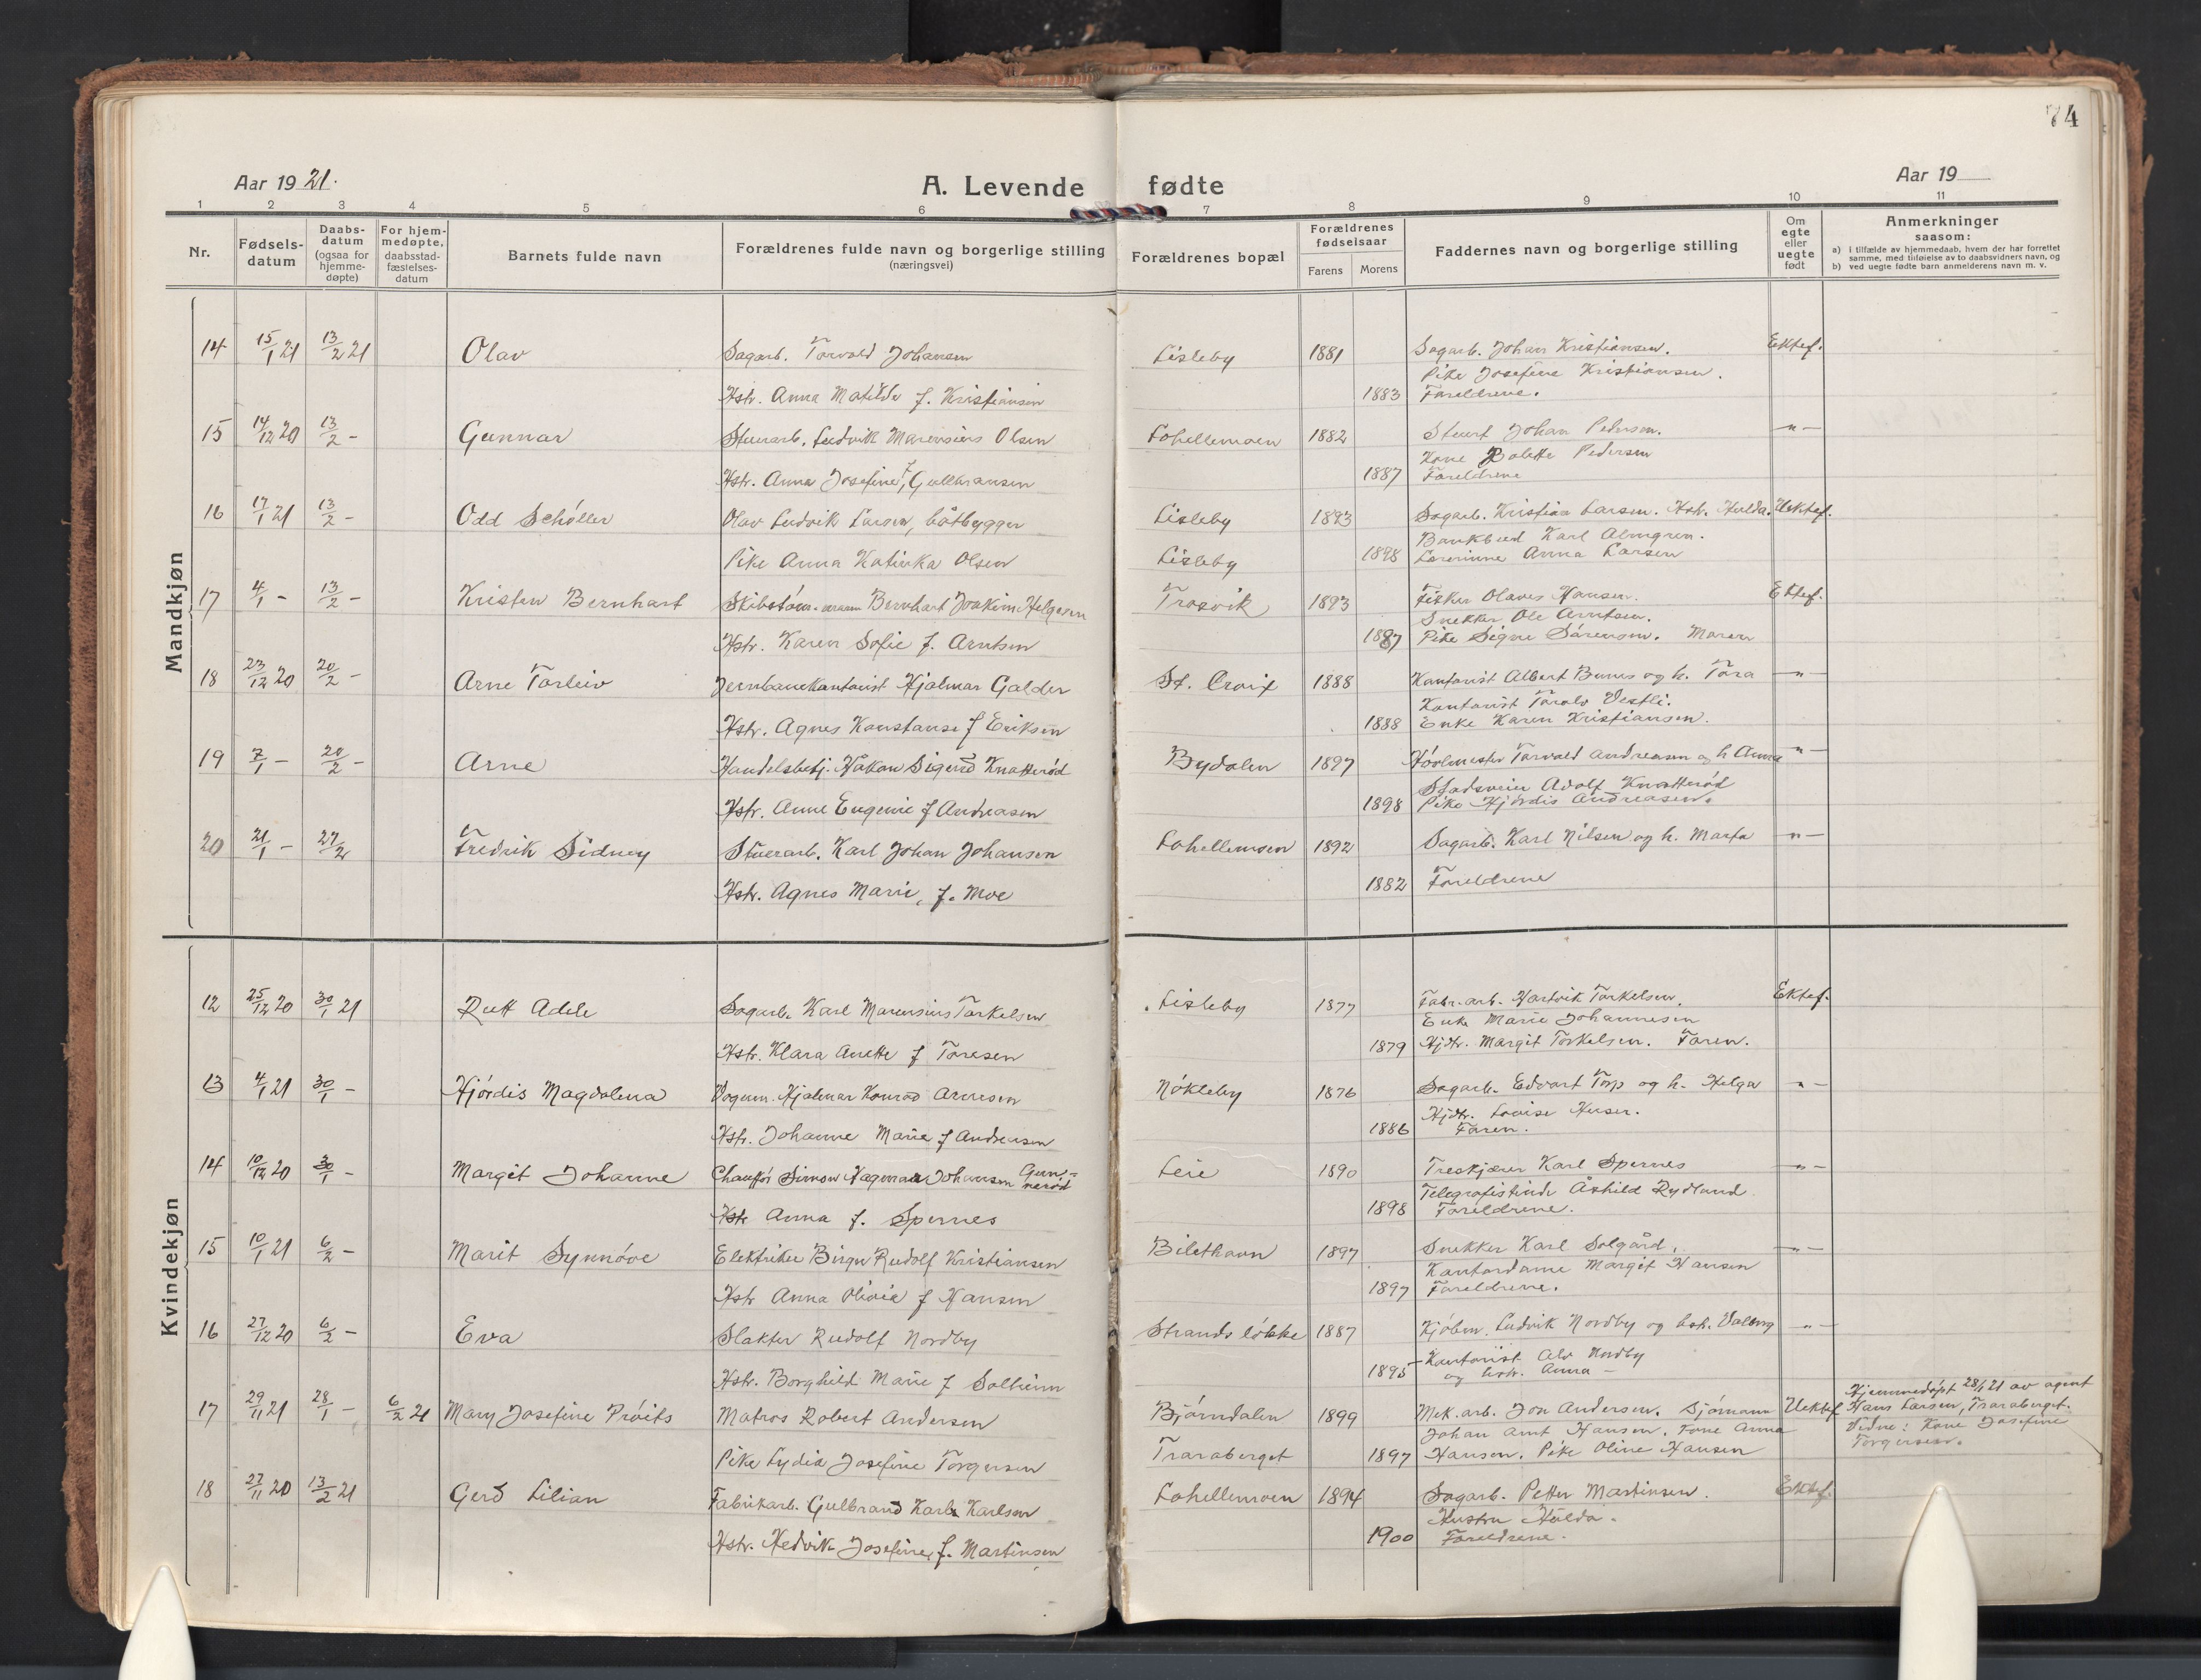 74
Aar 1921.
A. Levende fødte
Aar 19
1 2 3 4 5 6 7 8 9 10 11
Nr.
Fødsels-
datum
Daabs-
datum
(ogsaa for
hjemme-
døpte)
For hjem-
medøpte,
daabsstad-
fæstelses-
datum
Barnets fulde navn
Forældrenes fulde navn og borgerlige stilling
(næringsvei)
Forældrenes bopæl
Forældrenes
fødselsaar
Farens Morens
Faddernes navn og borgerlige stilling
Om
egte
eller
uegte
født
Anmerkninger
saasom:
a) i tilfælde av hjemmedaab, hvem der har forrettet
samme, med tilføielse av to daabsvidners navn, og
b) ved uegte fødte barn anmelderens navn m. v.
Mandkjøn
14 15/1 21 13/2 21 Olav Sagarb. Torvald Johansen Lisleby 1881 Sagarb. Johan Kristiansen. Ektef.
Pike Josefine Kristiansen.
Hstr. Anna Matilde f. Kristiansen 1883 Foreldrene.
15 14/12 20 13/2 - Gunnar Stuerarb. Ludvik Marensius Olsen Lohellemoen 1882 Stuert Johan Pedersen. -"-
Kone Bolette Pedersen
Hstr. Anna Josefine, f Gulbransen 1887 Foreldrene
16 17/1 21 13/2 - Odd Schøller Olav Ludvik Larsen, båtbygger Lisleby 1893 Sagarb. Kristian Larsen. Hstr. Hulda. Uektef.
Bankbud Karl Almgren.
Pike Anna Katinka Olsen Lisleby 1898 Lærerinne Anna Larsen
17 4/1 - 13/2 - Kristen Bernhart Bernhart Joakim Helgesen Trosvik 1893 Fisker Olaves Hansen. Ektef.
Snekker Ole Arntsen.
Hstr. Karen Sofie f. Arntsen 1887 Pike Signe Sørensen. Moren
18 23/12 20 20/2 - Arne Torleiv Jernbanekontorist Hjalmar Galder St. Croix 1888 Kontorist Albert Bunes og h. Tora -"-
Kontorist Toralv Vestli.
Hstr. Agnes Konstanse f Eriksen 1888 Enke Karen Kristiansen.
19 7/1 - 20/2 - Arne Handelsbetj. Håkon Sigurd Knatterød Bydalen 1897 Torvald Andreasen og h Anna -"-
Adolf Knatterød
Hstr. Anne Eugenie f Andreasen 1898 Pike Hjørdis Andreasen.
20 21/1 - 27/2 Fredrik Sidney Stuerarb. Karl Johan Johansen Lohellemoen 1892 Sagarb. Karl Nilsen og h. Marta -"-
Hstr. Agnes Marie, f. Moe 1882 Foreldrene
Kvindekjøn
12 25/12 20 30/1 21 Rutt Adele Sagarb. Karl Marensius Torkelsen Lisleby 1877 Fabr.arb. Hartvik Torkelsen. Ektef.
Enke Marie Johannesen
Hstr. Klara Anette f Toresen 1879 Hjdtr. Margit Torkelsen. Faren.
13 4/1 21 30/1 - Hjørdis Magdalena Vognm. Hjalmar Konrad Arnesen Nøkleby 1876 Sagarb. Edvart Torp og h. Helga -"-
Hjdtr. Lovise
Hstr. Johanne Marie f Andreasen 1886 Faren.
14 10/12 20 30/1 - Margit Johanne Chauffør Simon Hagman Johansen Gun-
nerød Leie 1890 Treskjærer Karl Spernes -"-
Telegrafistinde Åshild Rydland
Hstr Anna f. Spernes 1898 Foreldrene.
15 10/1 21 6/2 - Marit Synnøve Elektriker Birger Rudolf Kristiansen Bilethavn 1897 Snekker Karl Solgård. -"-
Kontordame Margit Hansen
Hstr Anna Olivia f Hansen 1897 Foreldrene.
16 27/12 20 6/2 - Eva Slakter Rudolf Nordby Strandsløkke 1887 Kjøbm. Ludvik Nordby og hstr. Valborg -"-
Kontorist Alv Nordby
Hstr. Borghild Marie f Solheim 1895 og hstr. Anna -
17 29/11 21 28/1 - 6/2 21 Mary Josefine Prøits Matros Robert Andersen Bjørndalen 1899 Mek.arb. Jon Andersen. Sjømann Uektef
Johan Arnt Hansen. Anna
Pike Lydia Josefine Torgersen Traraberget 1897 Hansen. Pike Oline Hansen
Hjemmedøpt 28/1 21 av agent
Hans Larsen, Traraberget.
Vidne: Kone Josefine
Torgersen.
18 27/11 20 13/2 21 Gerd Lilian Fabrikarb. Gulbrand Karl Karlsen Lohellemoen 1894 Sagarb. Petter Martinsen. Ektef.
Hustru Hulda.
Hstr. Hedvik Josefine, f. Martinsen 1900 Foreldrene.